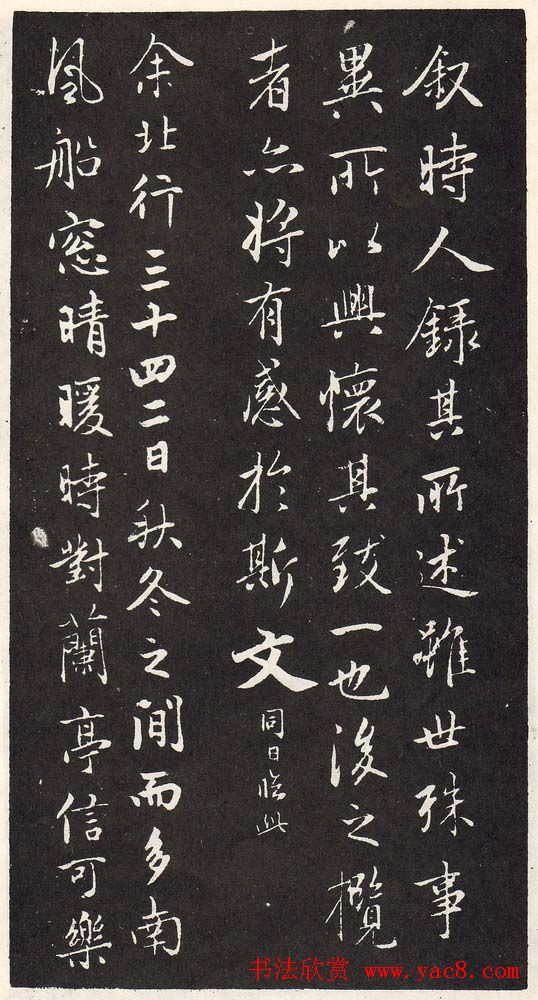 叙時人錄其所述雖世殊事
異所以興懷其致一也後之攬
者亦將有感於斯文同日臨此
余北行三十四二日秋冬之間而多南
風船窓晴暖時對蘭亭信可樂
书法欣赏 www.yac8.com